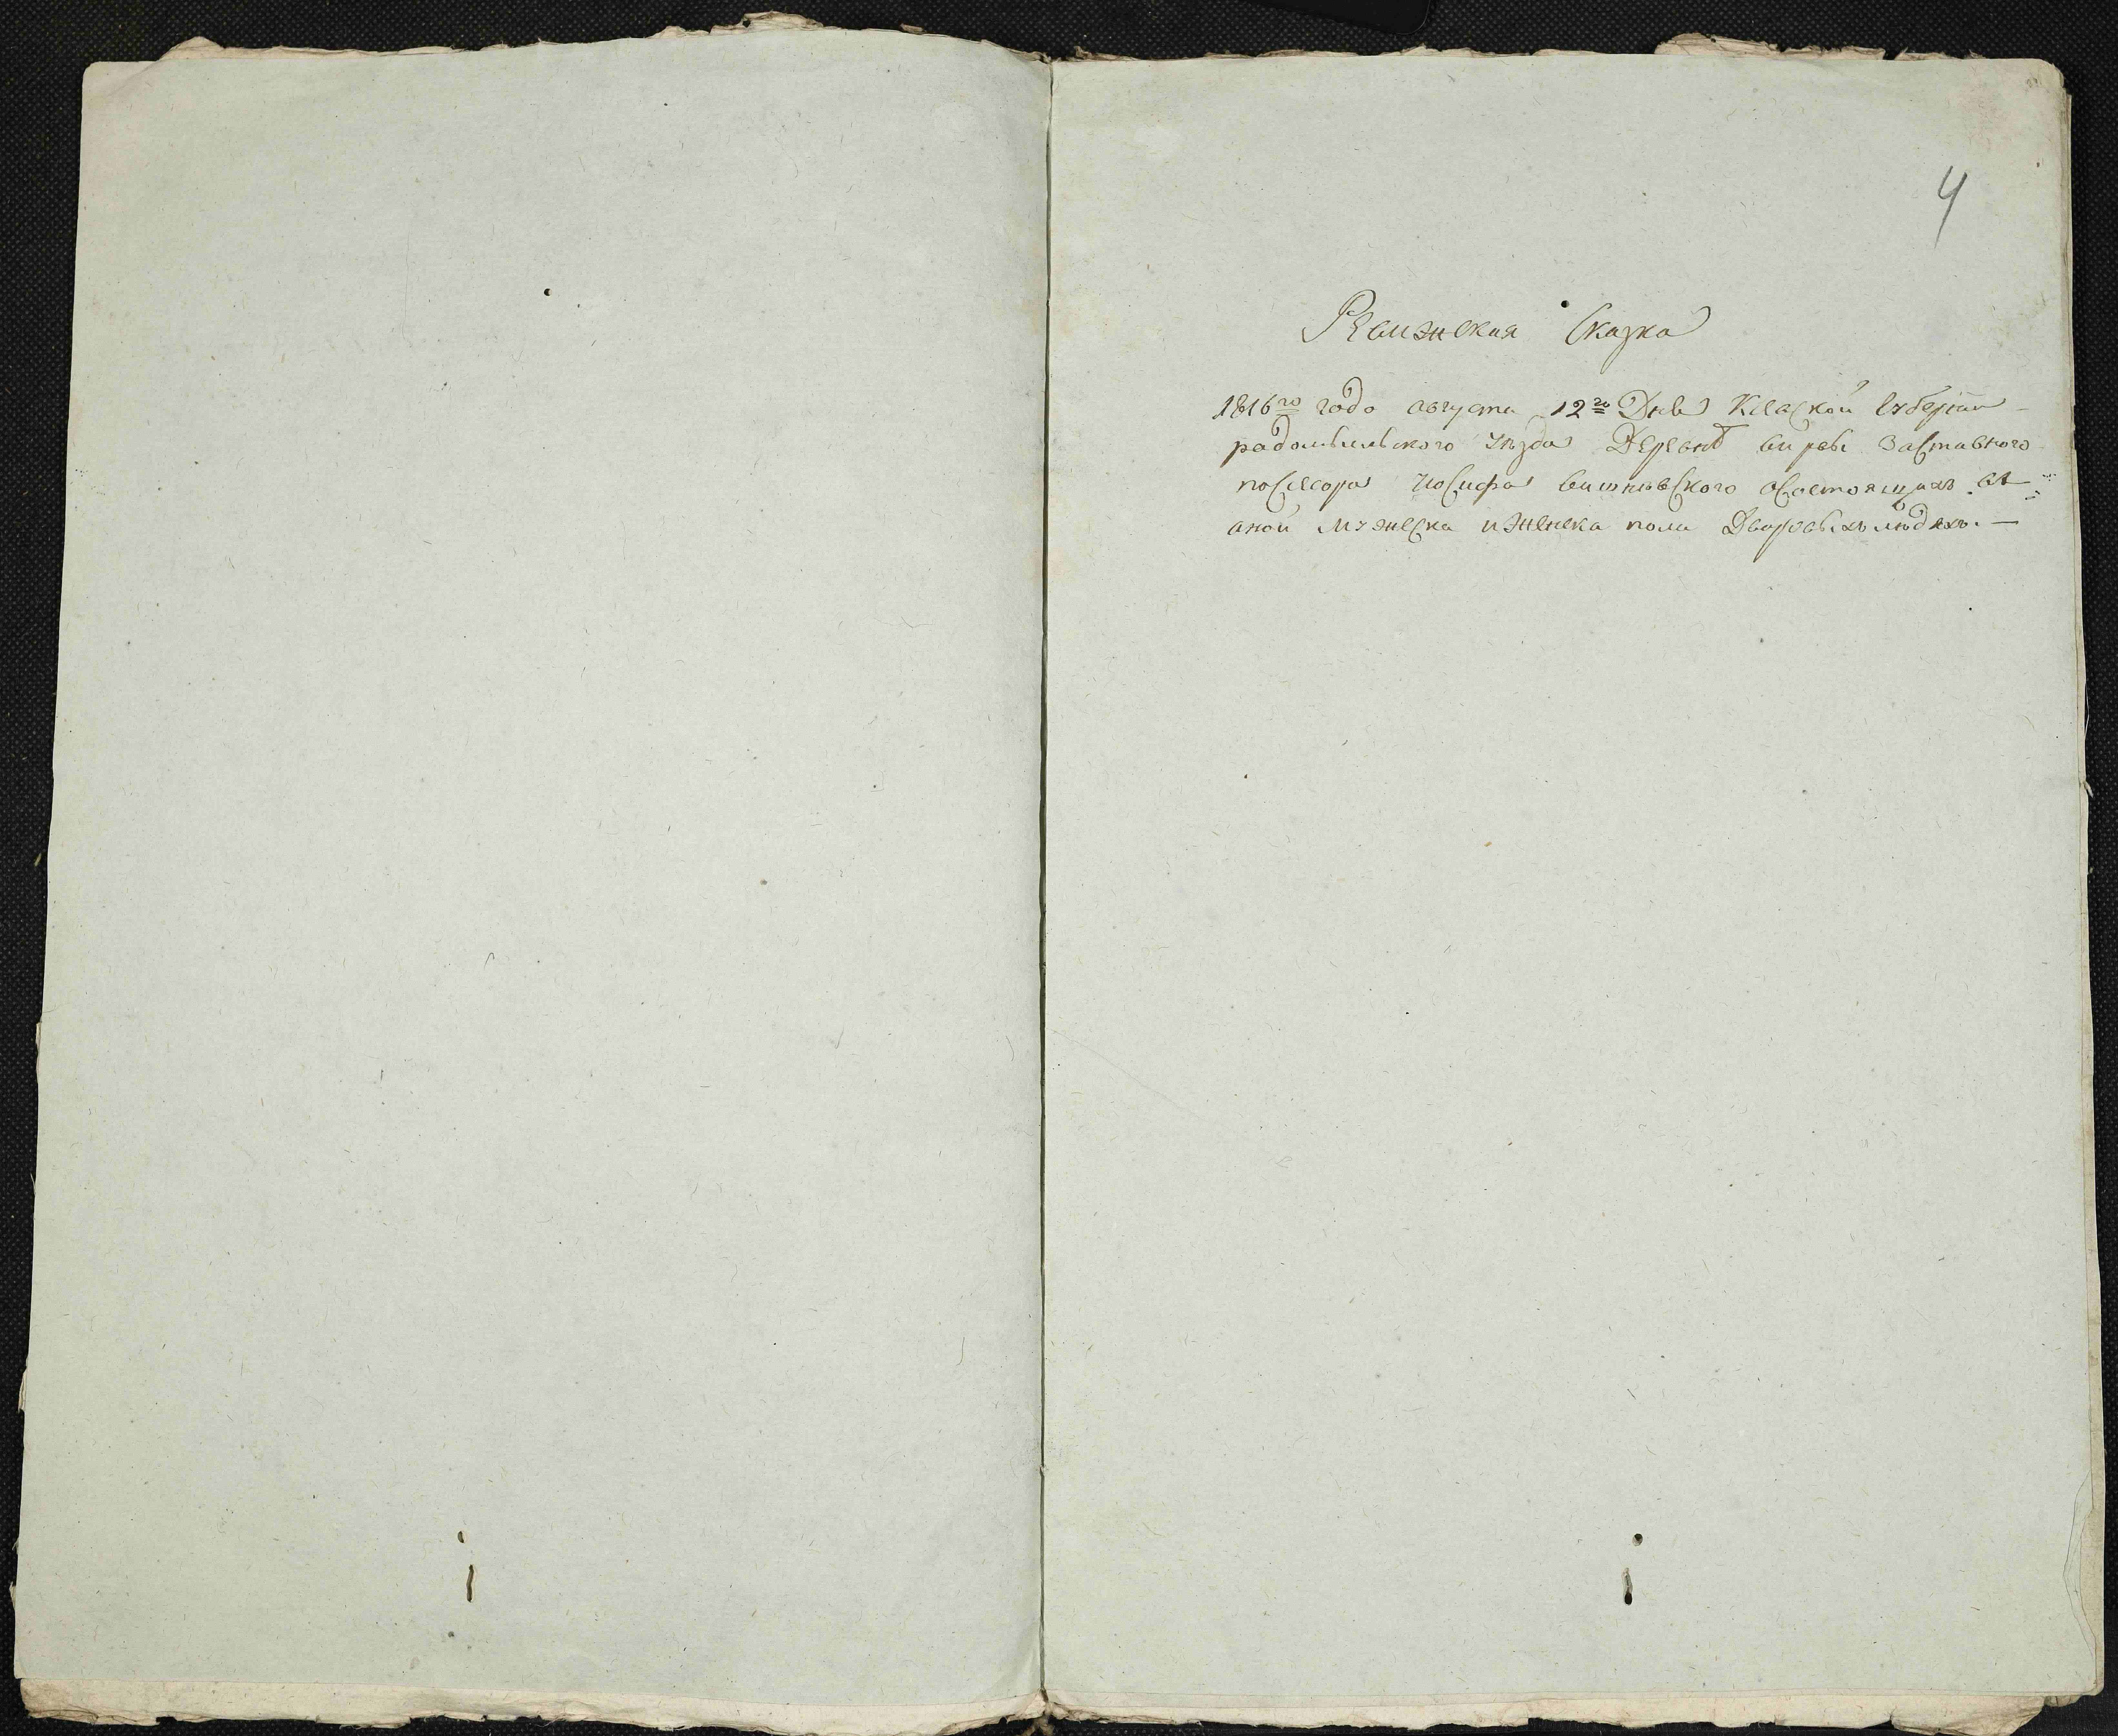 4
Ревижская Сказка
1816го годо августа 12го Дня Киевской Губернии
радомысльского уезда Деревне вырвы Заставного
посесора Иосифа вишневского осостоящихъ въ
оной мужеска и женска пола Дворовыхъ людяхъ.—